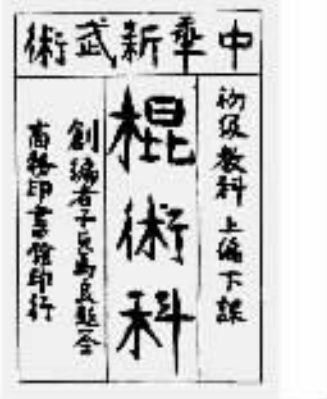 中華新武術
初級教科 上編下課
棍術科
創編者子貞馬良題㑹
商務印書館印行